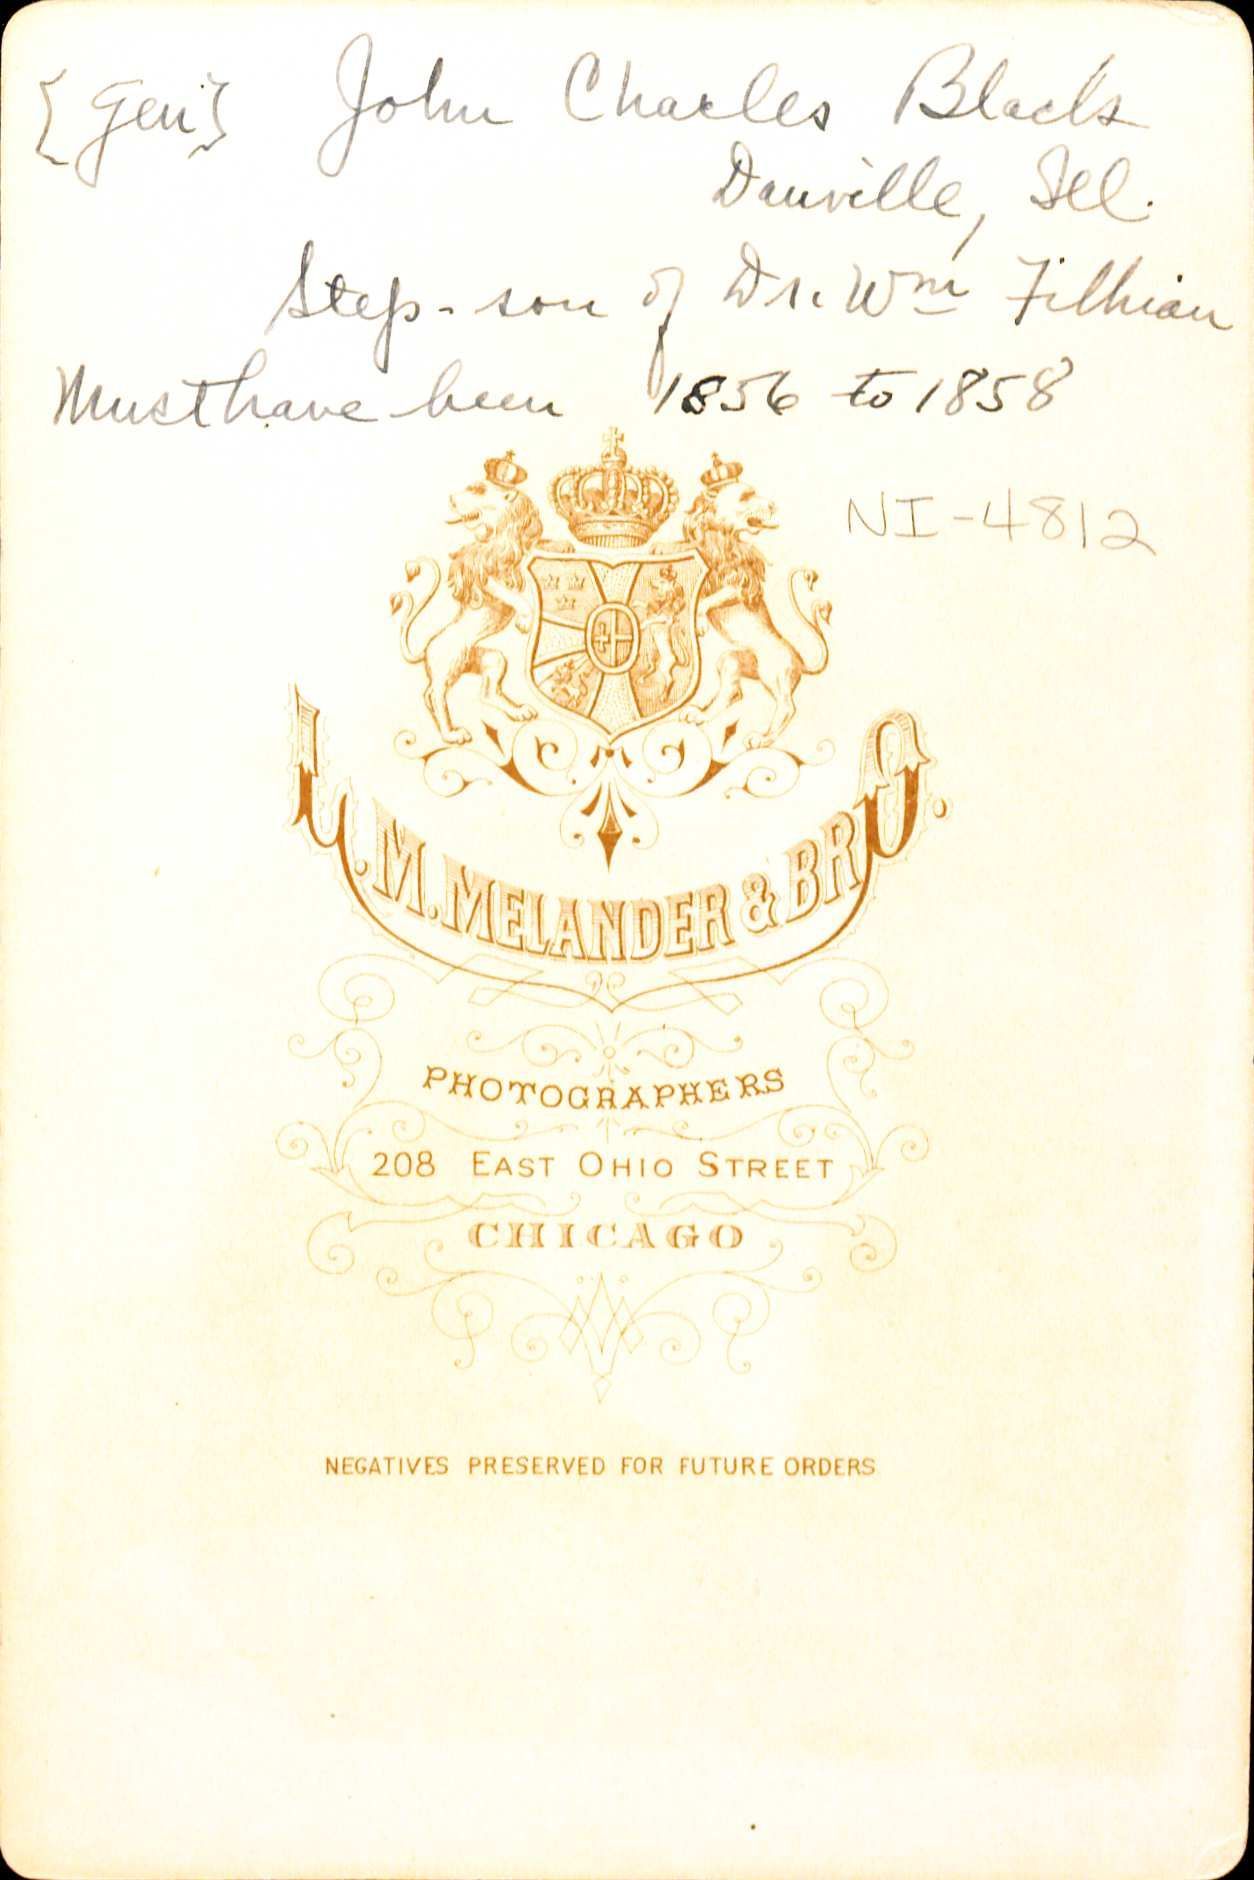 {Gen} John Charles Black
Danville, Ill.
Step-son of Dr. Wm Fithian
Must have been 1856 to 1858
NI-4812
L. M. MELANDER & BRO.
PHOTOGRAPHERS
208 EAST OHIO STREET
CHICAGO
NEGATIVES PRESERVED FOR FUTURE ORDERS